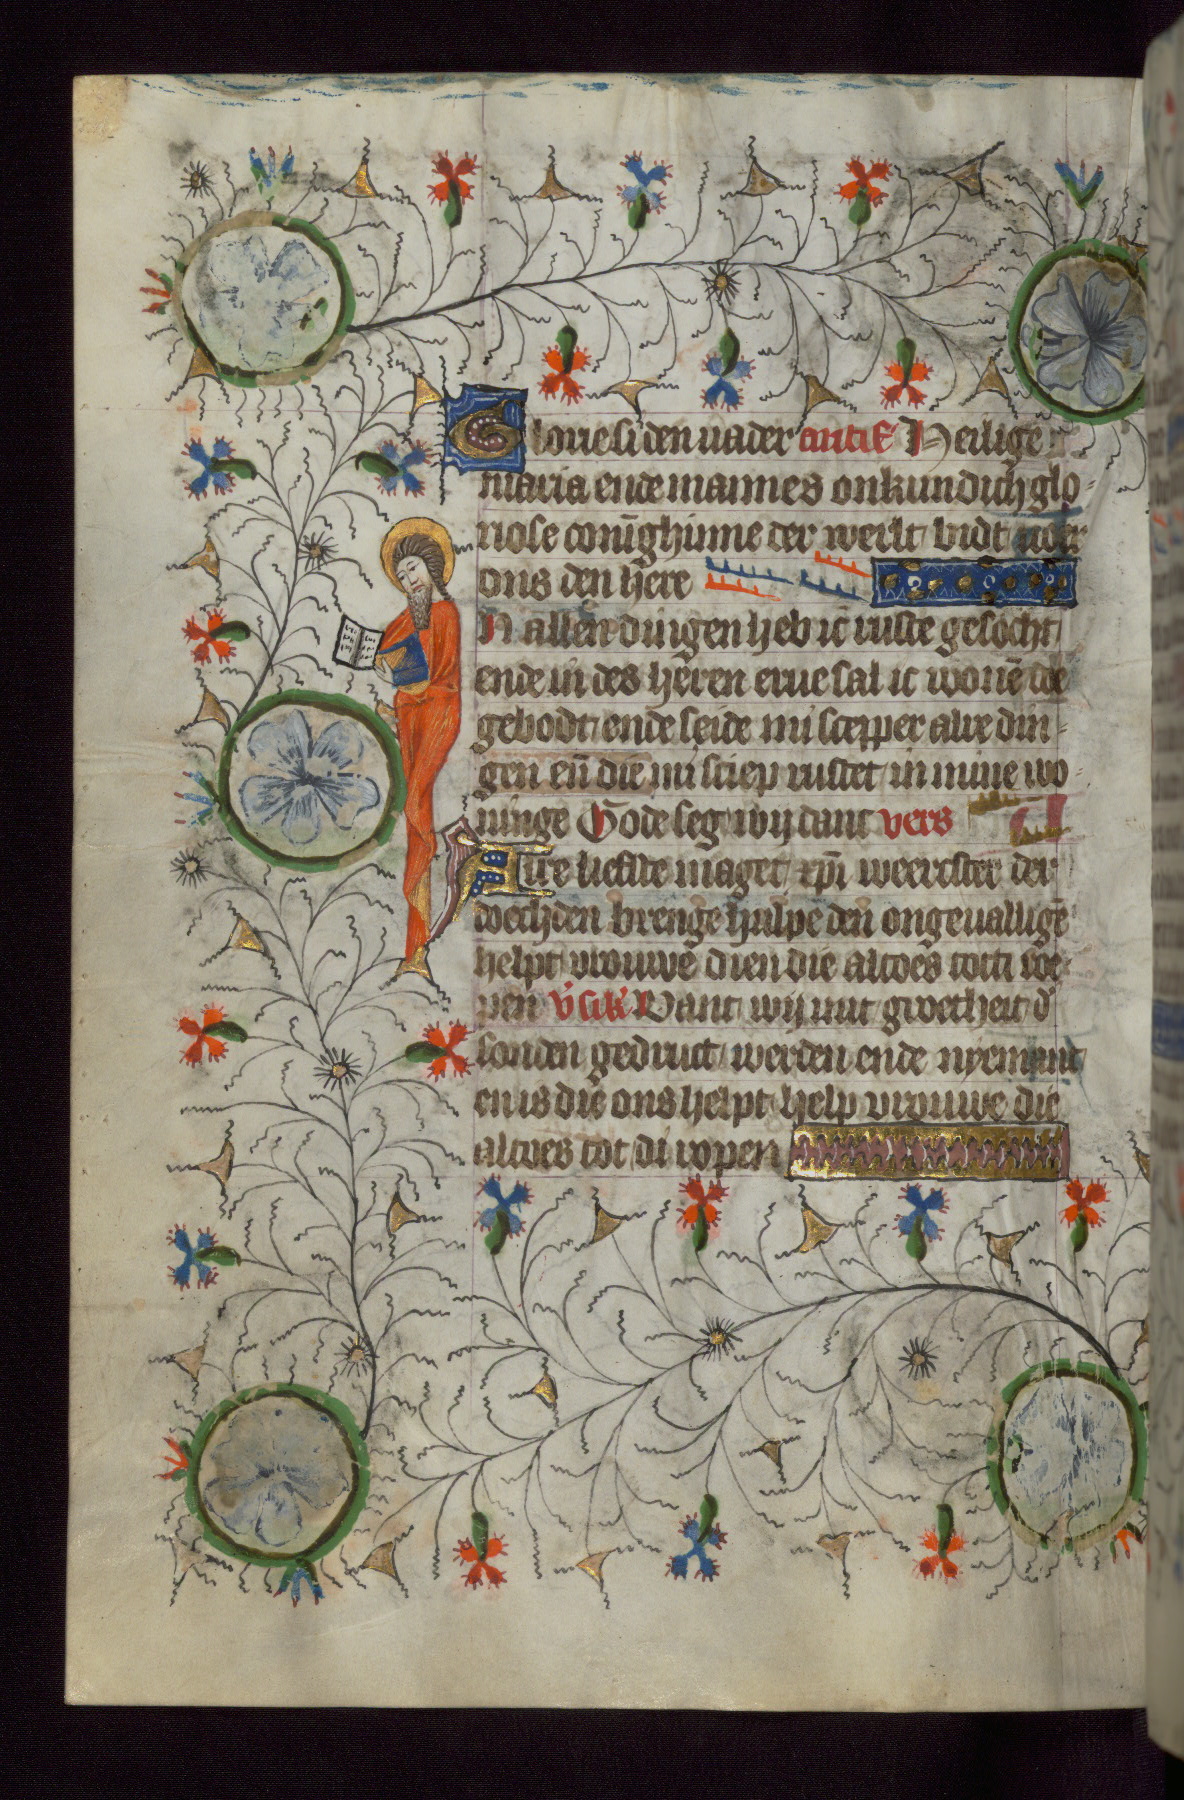 Glorie si den uader antife Heilige
maria ende mannes onkundich glo
riose coninghinne der werlt bidt
ons den here
In allen dingen heb ic ruste gesocht
ende in des heren erue sal ic wonē die
gebodt ende seide mi scepper alre din
gen eñ die mi sciep rustet in mine wo
ninge Gode seg wij danc vers
Alre liefste maget xpī der
doechden brenge hulpe den ongeuallige
helpt vrouwe dien die altoes totti roe
pen Want wij mit groetheit d'
sonden gedruct werden ende nyemant
en is die ons helpt help vrouwe die
altoes tot di ropen